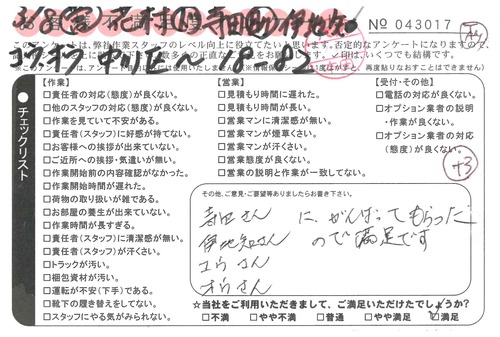 No 043017
●チェックリスト
【作業】
□責任者の対応(態度)が良くない。
□他のスタッフの対応(態度)が良くない。
□作業を見ていて不安がある。
□責任者(スタッフ)に好感が持てない。
□お客様への挨拶が出来ていない。
□ご近所への挨拶・気遣いが無い。
□作業開始前の内容確認がなかった。
□作業開始時間が遅れた。
□荷物の取り扱いが雑である。
□お部屋の養生が出来ていない。
□作業時間が長すぎる。
□責任者(スタッフ)に清潔感が無い。
□責任者(スタッフ)が汗くさい。
□トラックが汚い。
□梱包資材が汚い。
□運転が不安(下手)である。
□靴下の履き替えをしてない。
□スタッフにやる気がみられない。
【営業】
□見積もり時間に遅れた。
□見積もり時間が長い。
□営業マンに清潔感が無い。
□営業マンが煙草くさい。
□営業マンが汗くさい。
□営業態度が良くない。
□営業の説明と作業が一致してない。
【受付・その他】
□電話の対応が良くない。
□オプション業者の説明
・作業が良くない。
□オプション業者の対応
(態度)が良くない。
+3
その他、ご意見・ご要望等ありましたらお書き下さい。
寺田さん
伊地知さん
ユウさん
オウさん
に、がんばってもらった
ので満足です
☆当社をご利用いただきまして、ご満足いただけたでしょうか?
□不満 □やや不満 □普通 □やや満足 ☑満足